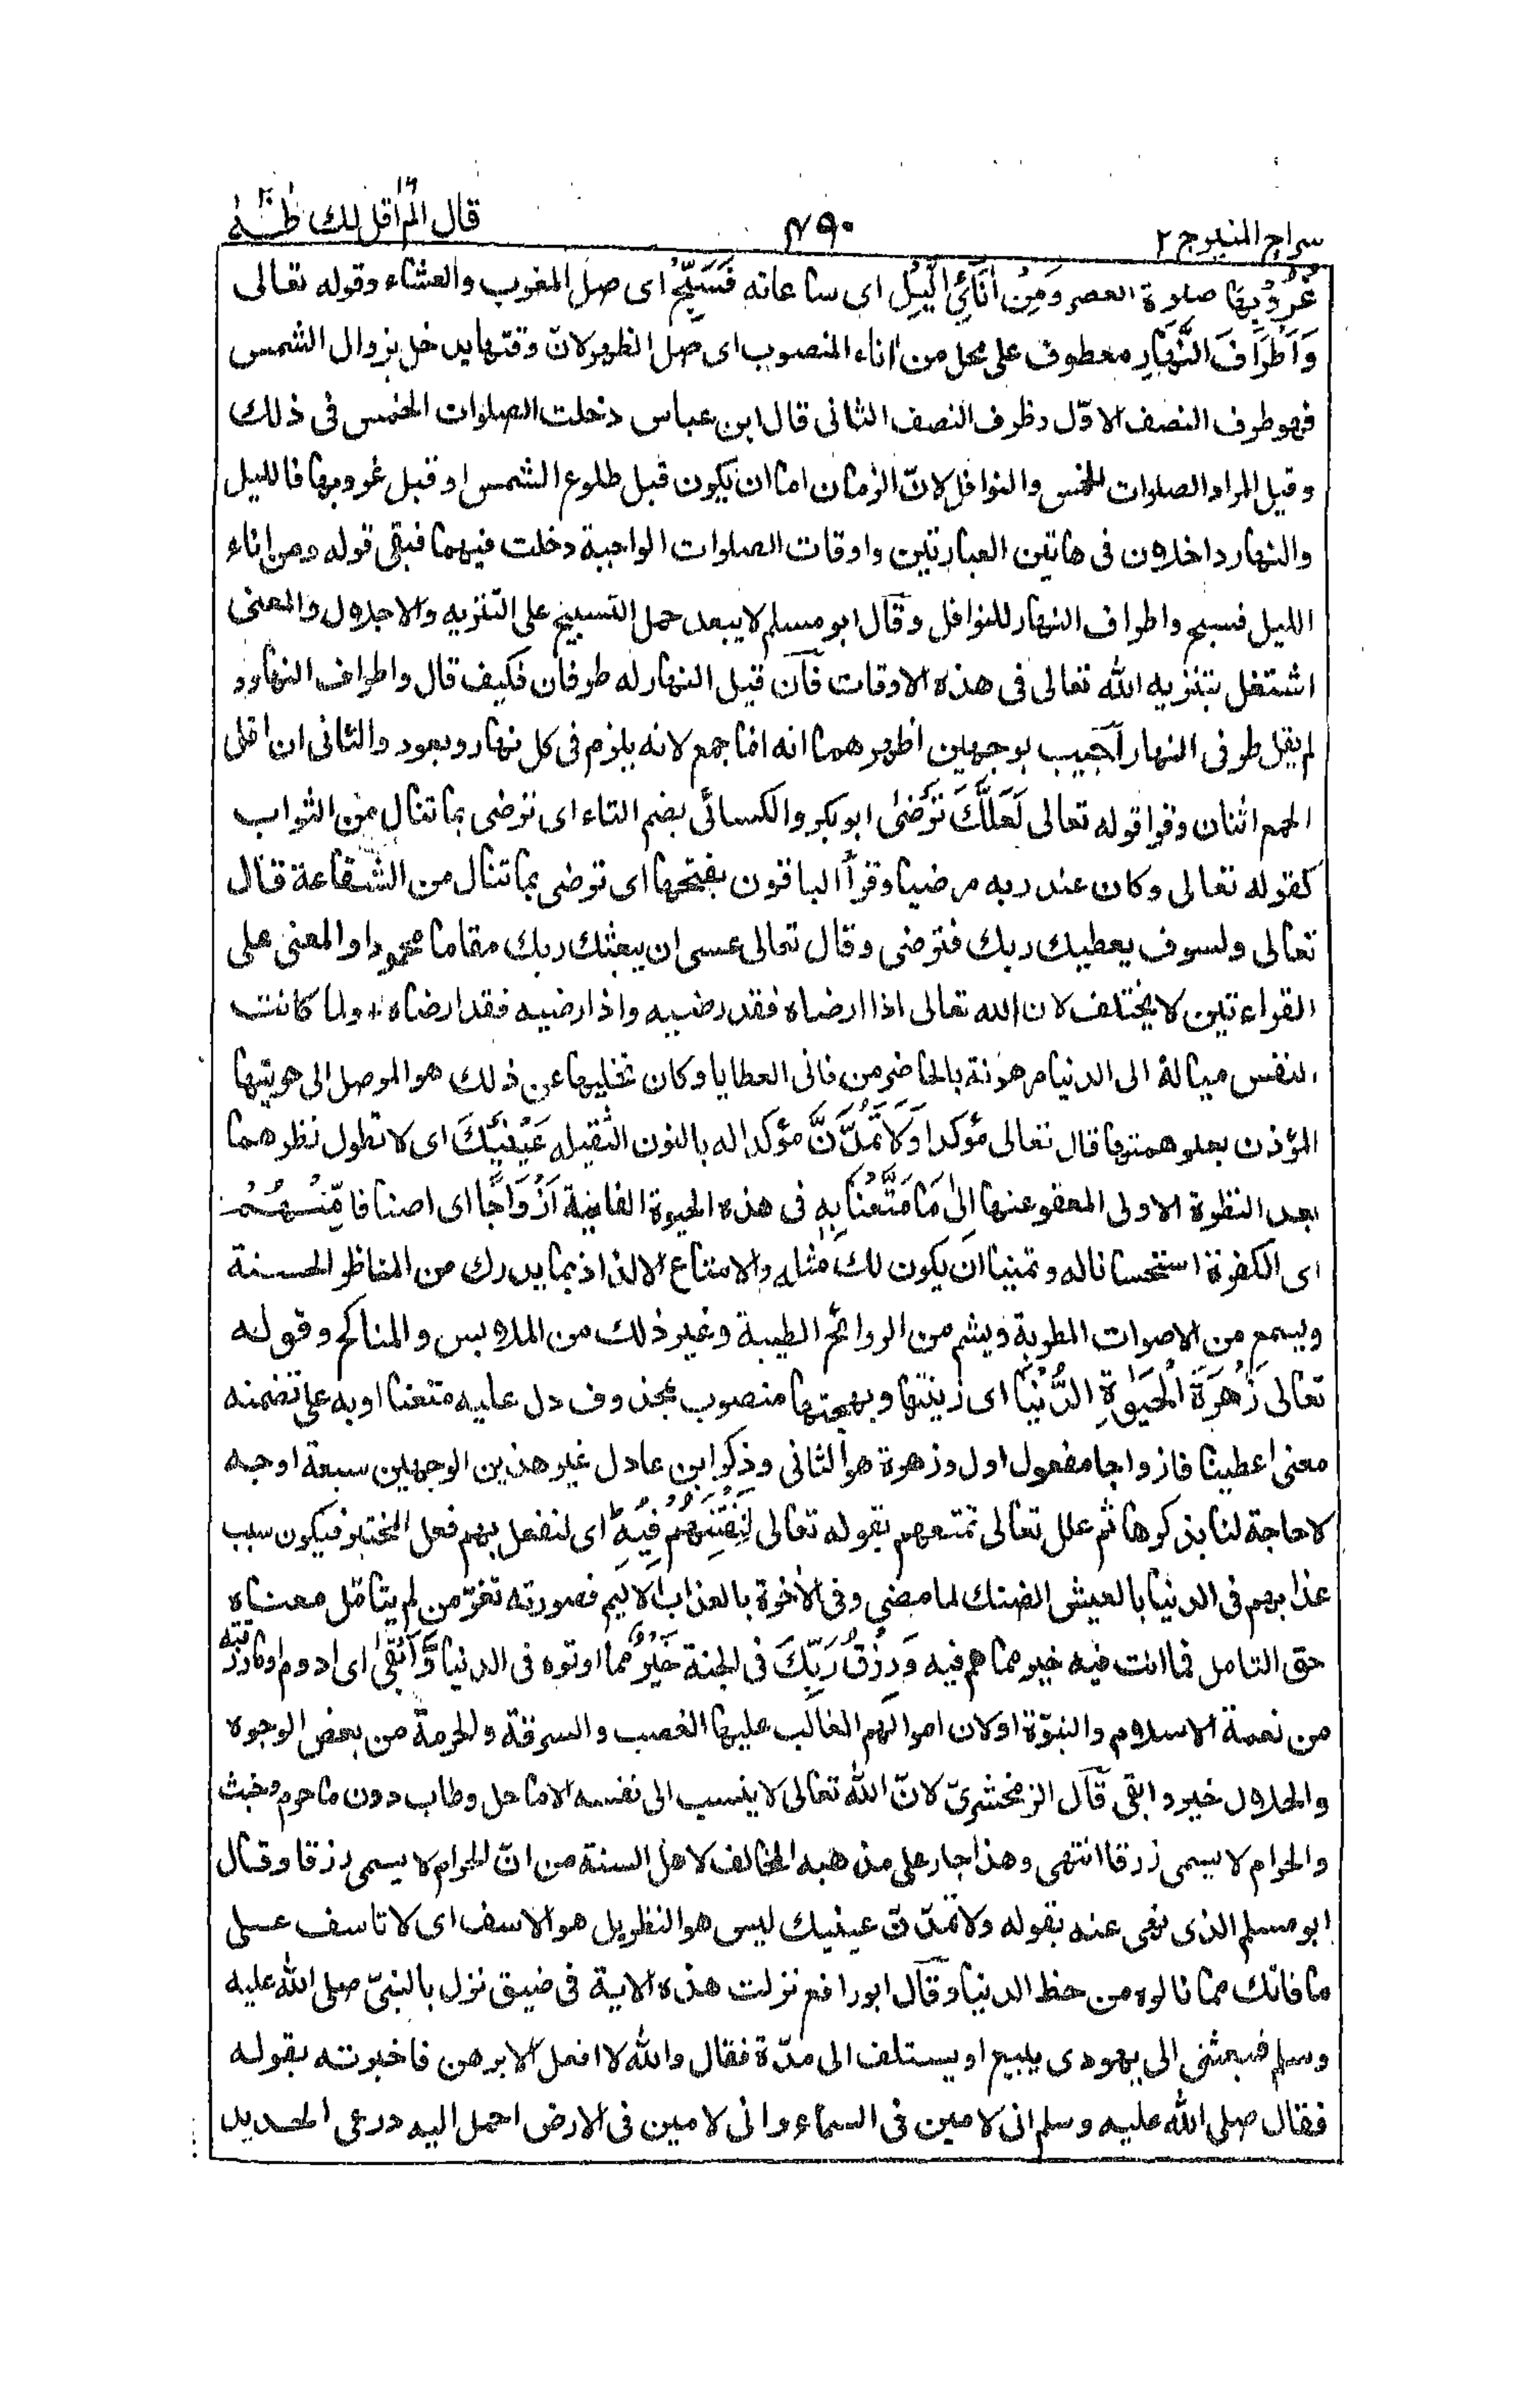 سراج المنير ج ٢
٤٩٠
قال الم اقل لك ١٦ طٰهٰ ٢٠
غُرُوْبِهَا صلاة العصر وَمِنْ اٰنَآئِ الَّيْلِ اى ساعاته فَسَبِّحْ اى صل المغرب والعشاء وقوله تعالى
وَاَطْرَافَ النَّهَارِ معطوف على محل من اٰناء المنصوب اى صل الظهر لانّ وقتها يدخل بزوال الشمس
فهو طرف النصف الاوّل وطرف النصف الثانى قال ابن عباس دخلت الصلوات الخمس فى ذلك
وقيل المراد الصلوات الخمس والنوافل لانّ الزمان اما ان يكون قبل طلوع الشمس او قبل غروبها فالليل
والنهار داخلان فى هاتين العبارتين واوقات الصلوات الواجبة دخلت فيهما فبقى قوله ومن اٰناء
الليل فسبح واطراف النهار للنوافل وقال ابو مسلم لا يبعد حمل التسبيح على التنزيه والاجلال والمعنى
اشتغل بتنزيه الله تعالى فى هذه الاوقات فان قيل النهار له طرفان فكيف قال واطراف النهار و
لم يقل طرفى النهار اجيب بوجهين اظهرهما انه انما جمع لانه يلزم فى كل نهار ويعود والثانى ان اقل
الجمع اثنان وقرا قوله تعالى لَعَلَّكَ تَرْضٰى ابو بكر والكسائى بضم التاء اى ترضى بما تنال من الثواب
كقوله تعالى وكان عند ربه مرضيا وقرأ الباقون بفتحها اى ترضى بما تنال من الشفاعة قال
تعالى ولسوف يعطيك ربك فترضى وقال تعالى عسى ان يبعثك ربك مقاما محمودا والمعنى على
القراءتين لا يختلف لان الله تعالى اذا ارضاه فقد رضيه واذا رضيه فقد ارضاه ولما كانت
النفس ميالة الى الدنيا مرهونة بالحاضر من فانى العطايا وكان تخليها عن ذلك هو الموصل الى هويتها
المؤذن بعلو همتها قال تعالى مؤكدا وَلَا تَمُدَّنَّ مؤكدا له بالنون الثقيلة عَيْنَيْكَ اى لا تطول نظرهما
بعد النظرة الاولى المعفو عنها اِلٰى مَا مَتَّعْنَا بِهٖ فى هذه الحيوة الفانية اَزْوَاجًا اى اصنافا مِّنْهُمْ
اى الكفرة استحسانا له وتمنيا ان يكون لك مثله والامتاع الالذاذ بما يدرك من المناظر الحسنة
ويسمع من الاصوات المطربة ويشم من الروائح الطيبة وغير ذلك من الملابس والمناكح وقوله
تعالى زَهْرَةَ الْحَيٰوةِ الدُّنْيَا اى زينتها وبهجتها منصوب بمحذوف دل عليه متعنا او به على تضمنه
معنى اعطينا فازواجا مفعول اول وزهرة هو الثانى وذكر ابن عادل غير هذين الوجهين سبعة اوجه
لا حاجة لنا بذكرها ثم علل تعالى تمتعهم بقوله تعالى لِنَفْتِنَهُمْ فِيْهِ ط اى لنفعل بهم فعل المختبر فيكون سبب
عذابهم فى الدنيا بالعيش الضنك لما مضى وفى الاٰخرة بالعذاب الاليم فصورته تغرّ من لم يتامّل معناه
حق التامل فما انت فيه خير مما هم فيه وَرِزْقُ رَبِّكَ فى الجنة خَيْرٌ مما اوتوه فى الدنيا وَّاَبْقٰى اى ادوم او ما رزقته
من نعمة الاسلام والنبوّة او لان اموالهم الغالب عليها الغصب والسرقة والحرمة من بعض الوجوه
والحلال خير وابقى قال الزمخشرىّ لانّ الله تعالى لا ينسب الى نفسه الا ما حل وطاب دون ما حرم وخبث
والحرام لا يسمى زرقا انتهى وهذا جار على مذهبه المخالف لاهل السنة من انّ الحرام لا يسمى رزقا وقال
ابو مسلم الذى نهى عنه بقوله ولا تمدّنّ عينيك ليس هو النظر بل هو الاسف اى لا تاسف على
ما فاتك مما نالوه من حظ الدنيا وقال ابو رافع نزلت هذه الاية فى ضيق نزل بالنبىّ صلى الله عليه
وسلم فبعثنى الى يهودى يبيع او يستلف الى مدّة فقال والله لا افعل الا برهن فاخبرته بقوله
فقال صلى الله عليه وسلم انى لامين فى السماء وانى لامين فى الارض احمل اليه درعى الحديد